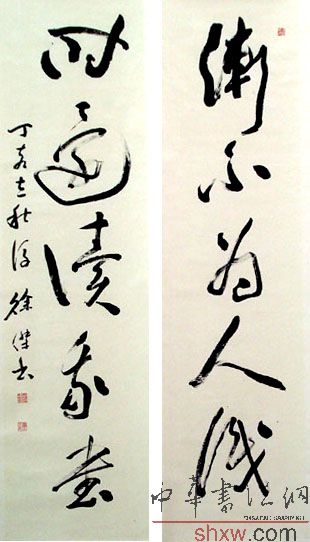 漸不為人識
時還讀我書
丁亥立秋後 徐傑書
中華書法網
shxw.com